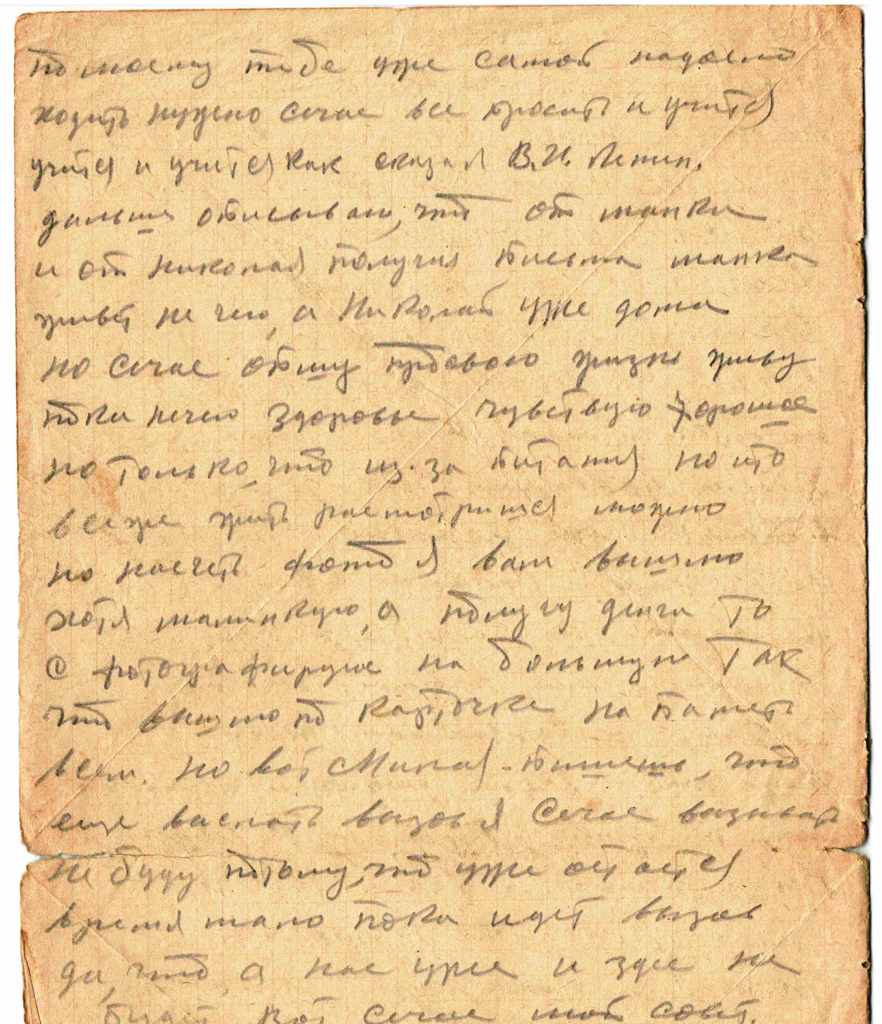 по моему тебе уже самой надоело
ходить нужно сечас все бросить и учится
учится и учится как сказал В.И. Ленин.
дальше описываю, что от тапки
и от Николая получил писма тапка
живет не чего, а Николай уже дома
но сечас опишу про свою жизнь живу
пока нечего здоровье чувствую хорошое
но только, что из-за питания но што
все же жить расмотрится можно
но насчет фото я вам вышлю
хотя маленкую, а получу денги то
с фотографируюс на большую так
что вышлю по карточке на память
всем. но вот пишешь, что
еще выслать вызов я сечас вызывать
не буду потому, что уже остается
время мало пока идет вызов
да, что, а нас уже и здес не
будет вот сечас мой совет.